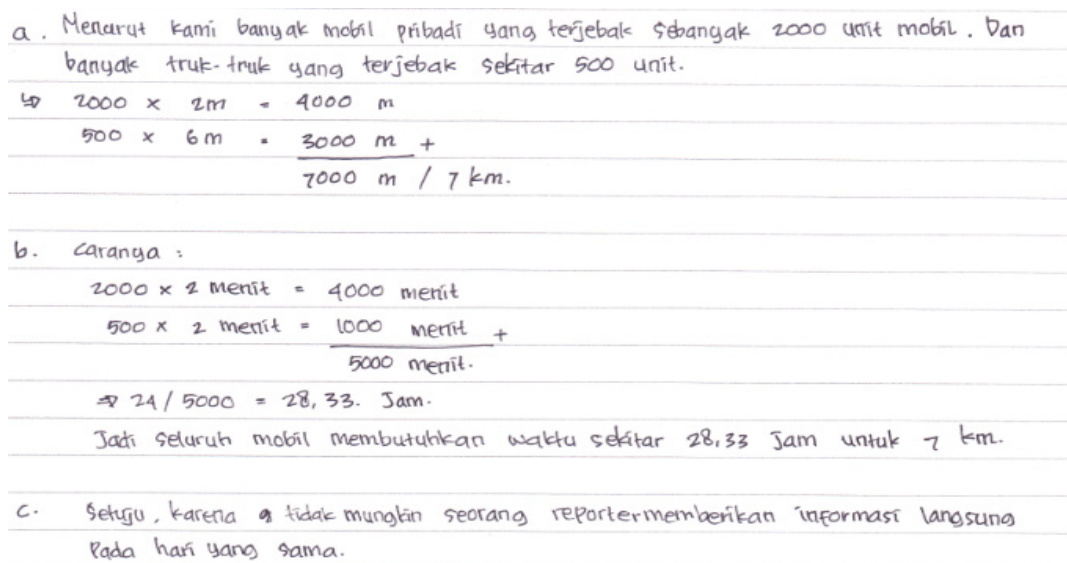 a. Menurut kami banyak mobil pribadi yang terjebak sebanyak 2000 unit mobil. Dan
banyak truk-truk yang terjebak sekitar 500 unit.
↳ 2000 x 2m = 4000 m
500 x 6 m = 3000 m +
7000 m / 7 km.
b. caranya :
2000 x 2 menit = 4000 menit
500 x 2 menit = 1000 menit +
5000 menit.
⇒ 24 / 5000 = 28,33. Jam.
Jadi seluruh mobil membutuhkan waktu sekitar 28,33 Jam untuk 7 km.
c. Setuju, karena tidak mungkin seorang reporter memberikan informasi langsung
Pada hari yang sama.